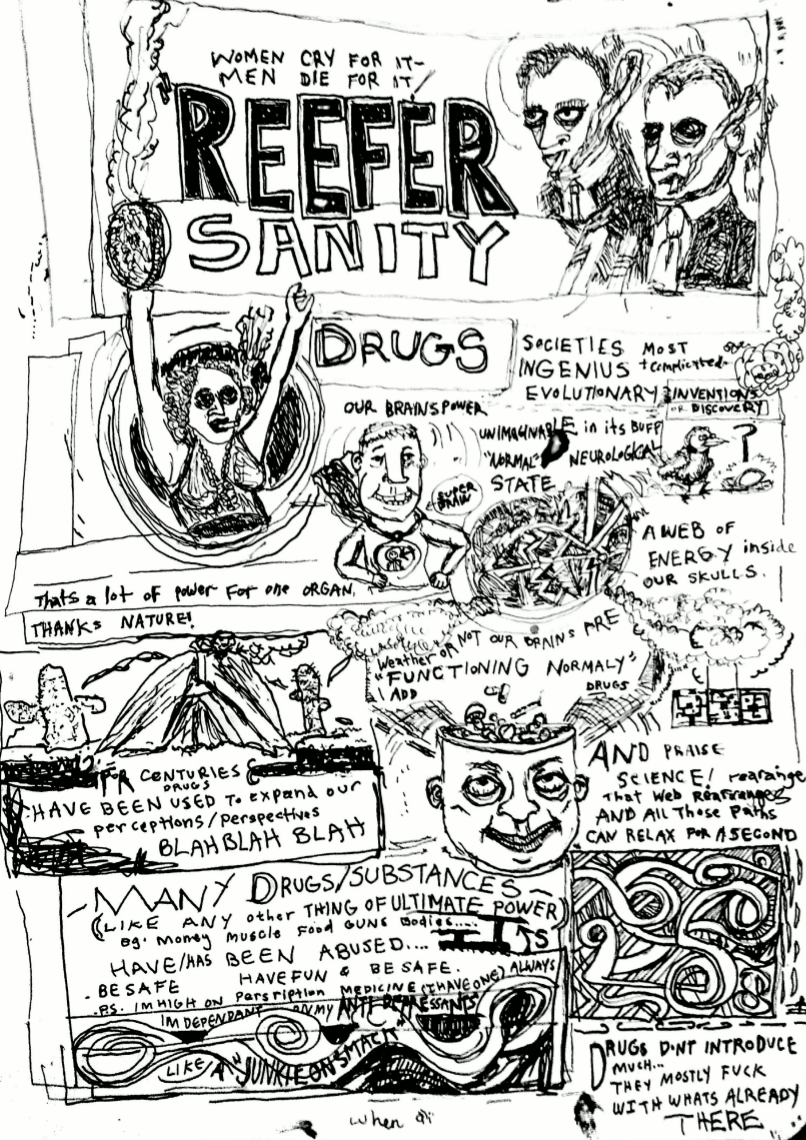 WOMEN CRY FOR IT-
MEN DIE FOR IT
REEFER
SANITY
DRUGS
SOCIETIES MOST
INGENIUS + complicated
EVOLUTIONARY INVENTIONS
OR DISCOVERY
?
OUR BRAINS POWER
UNIMAGINABLE in its BUFF
"NORMAL" NEUROLOGICAL
STATE
SUPER
BRAIN
A WEB OF
ENERGY inside
OUR SKULLS.
Thats a lot of power For one ORGAN.
THANKS NATURE!
Weather OR NOT OUR BRAINS ARE
"FUNCTIONING NORMALY"
I ADD DRUGS
AND PRAISE
SCIENCE! rearange
That Web Rearranges
AND All Those Paths
CAN RELAX FOR A SECOND
FOR CENTURIES
DRUGS
HAVE BEEN USED To expand our
perceptions/perspectives
BLAH BLAH BLAH
MANY DRUGS/SUBSTANCES-
(LIKE ANY other THING OF ULTIMATE POWER)
eg. Money Muscle Food GUNS Bodies....
HAVE/HAS BEEN ABUSED...
- BE SAFE HAVE FUN & BE SAFE.
-P.S. IM HIGH ON Parsription MEDICINE (I HAVE ONE) ALWAYS
IM DEPENDANT ON MY ANTI-DEPRESSANTS
LIKE A "JUNKIE ON SMACK"
DRUGS DONT INTRODUCE
MUCH...
THEY MOSTLY FUCK
WITH WHATS ALREADY
THERE
When